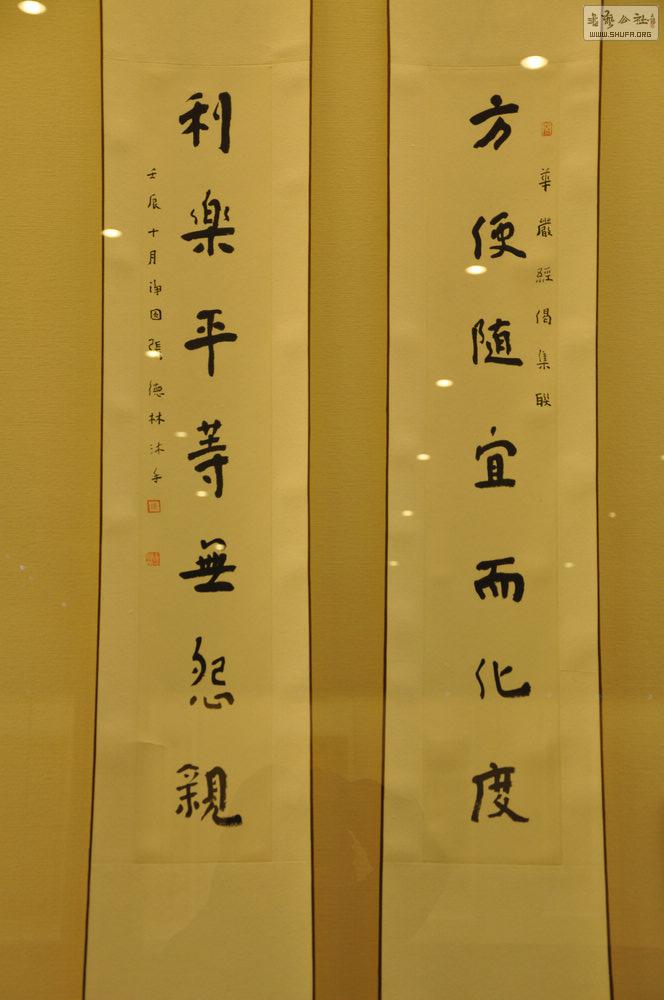 華嚴經偈集聯
方便随宜而化度
利樂平等無怨親
壬辰十月淨因張德林沐手
WWW.SHUFA.ORG